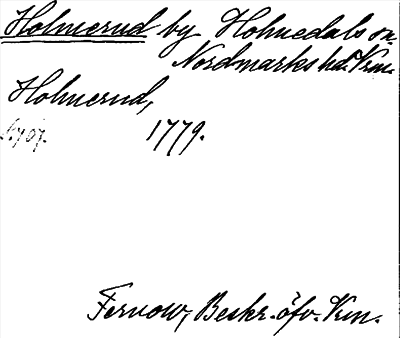 Holmerud by Holmedals sn.
Nordmarks hd. Vrm.
Holmerud,
1779.
Fernow, Beskr. öfv. Vrm.